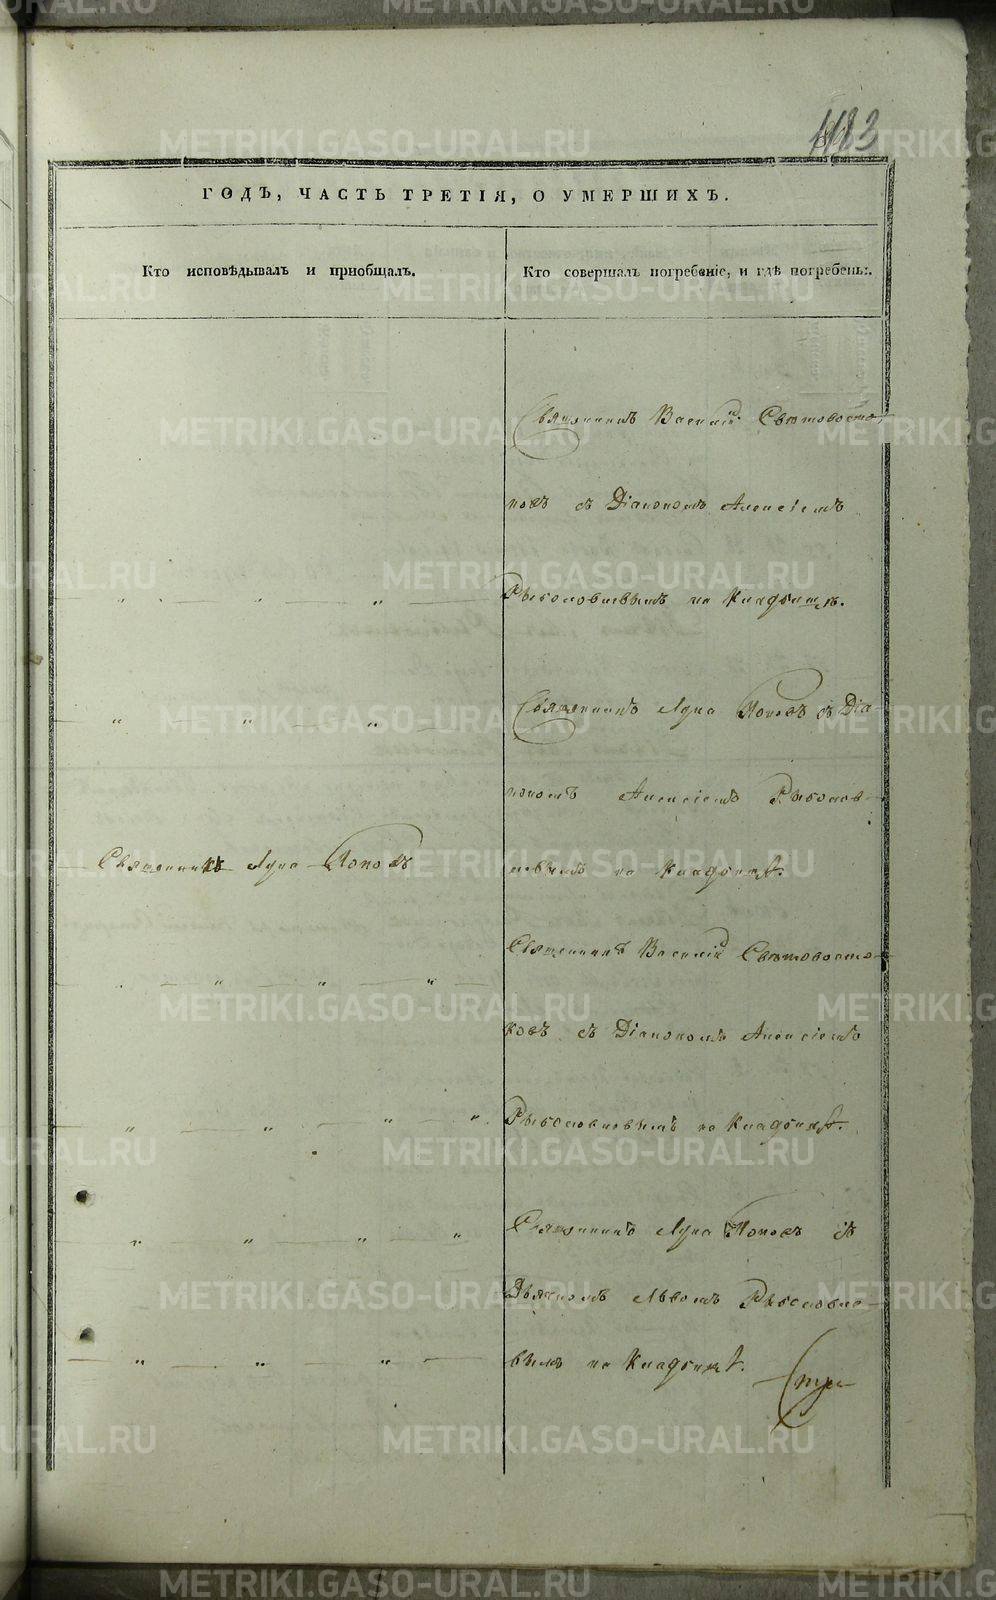 1183
ГОДЪ, ЧАСТЬ ТРЕТІЯ, О УМЕРШИХЪ.
Кто исповѣдывалъ и пріобщалъ.
Кто совершалъ погребеніе, и гдѣ погребены.
Священникъ Василій Свѣтовосто-
ковъ съ Діакономъ Алексіемъ
Рыболовлевымъ на Кладбищѣ.
Священникъ Лука Поповъ съ Діа-
кономъ Алексіемъ Рыболов-
левымъ на Кладбищѣ.
Священникъ Лука Поповъ
Священникъ Василій Свѣтовосто-
ковъ съ Діакономъ Алексіемъ
Рыболовлевымъ на Кладбищѣ.
Священникъ Лука Поповъ съ
Дьячкомъ Львомъ Рыболовле-
вымъ на Кладбищѣ.
METRIKI.GASO-URAL.RU